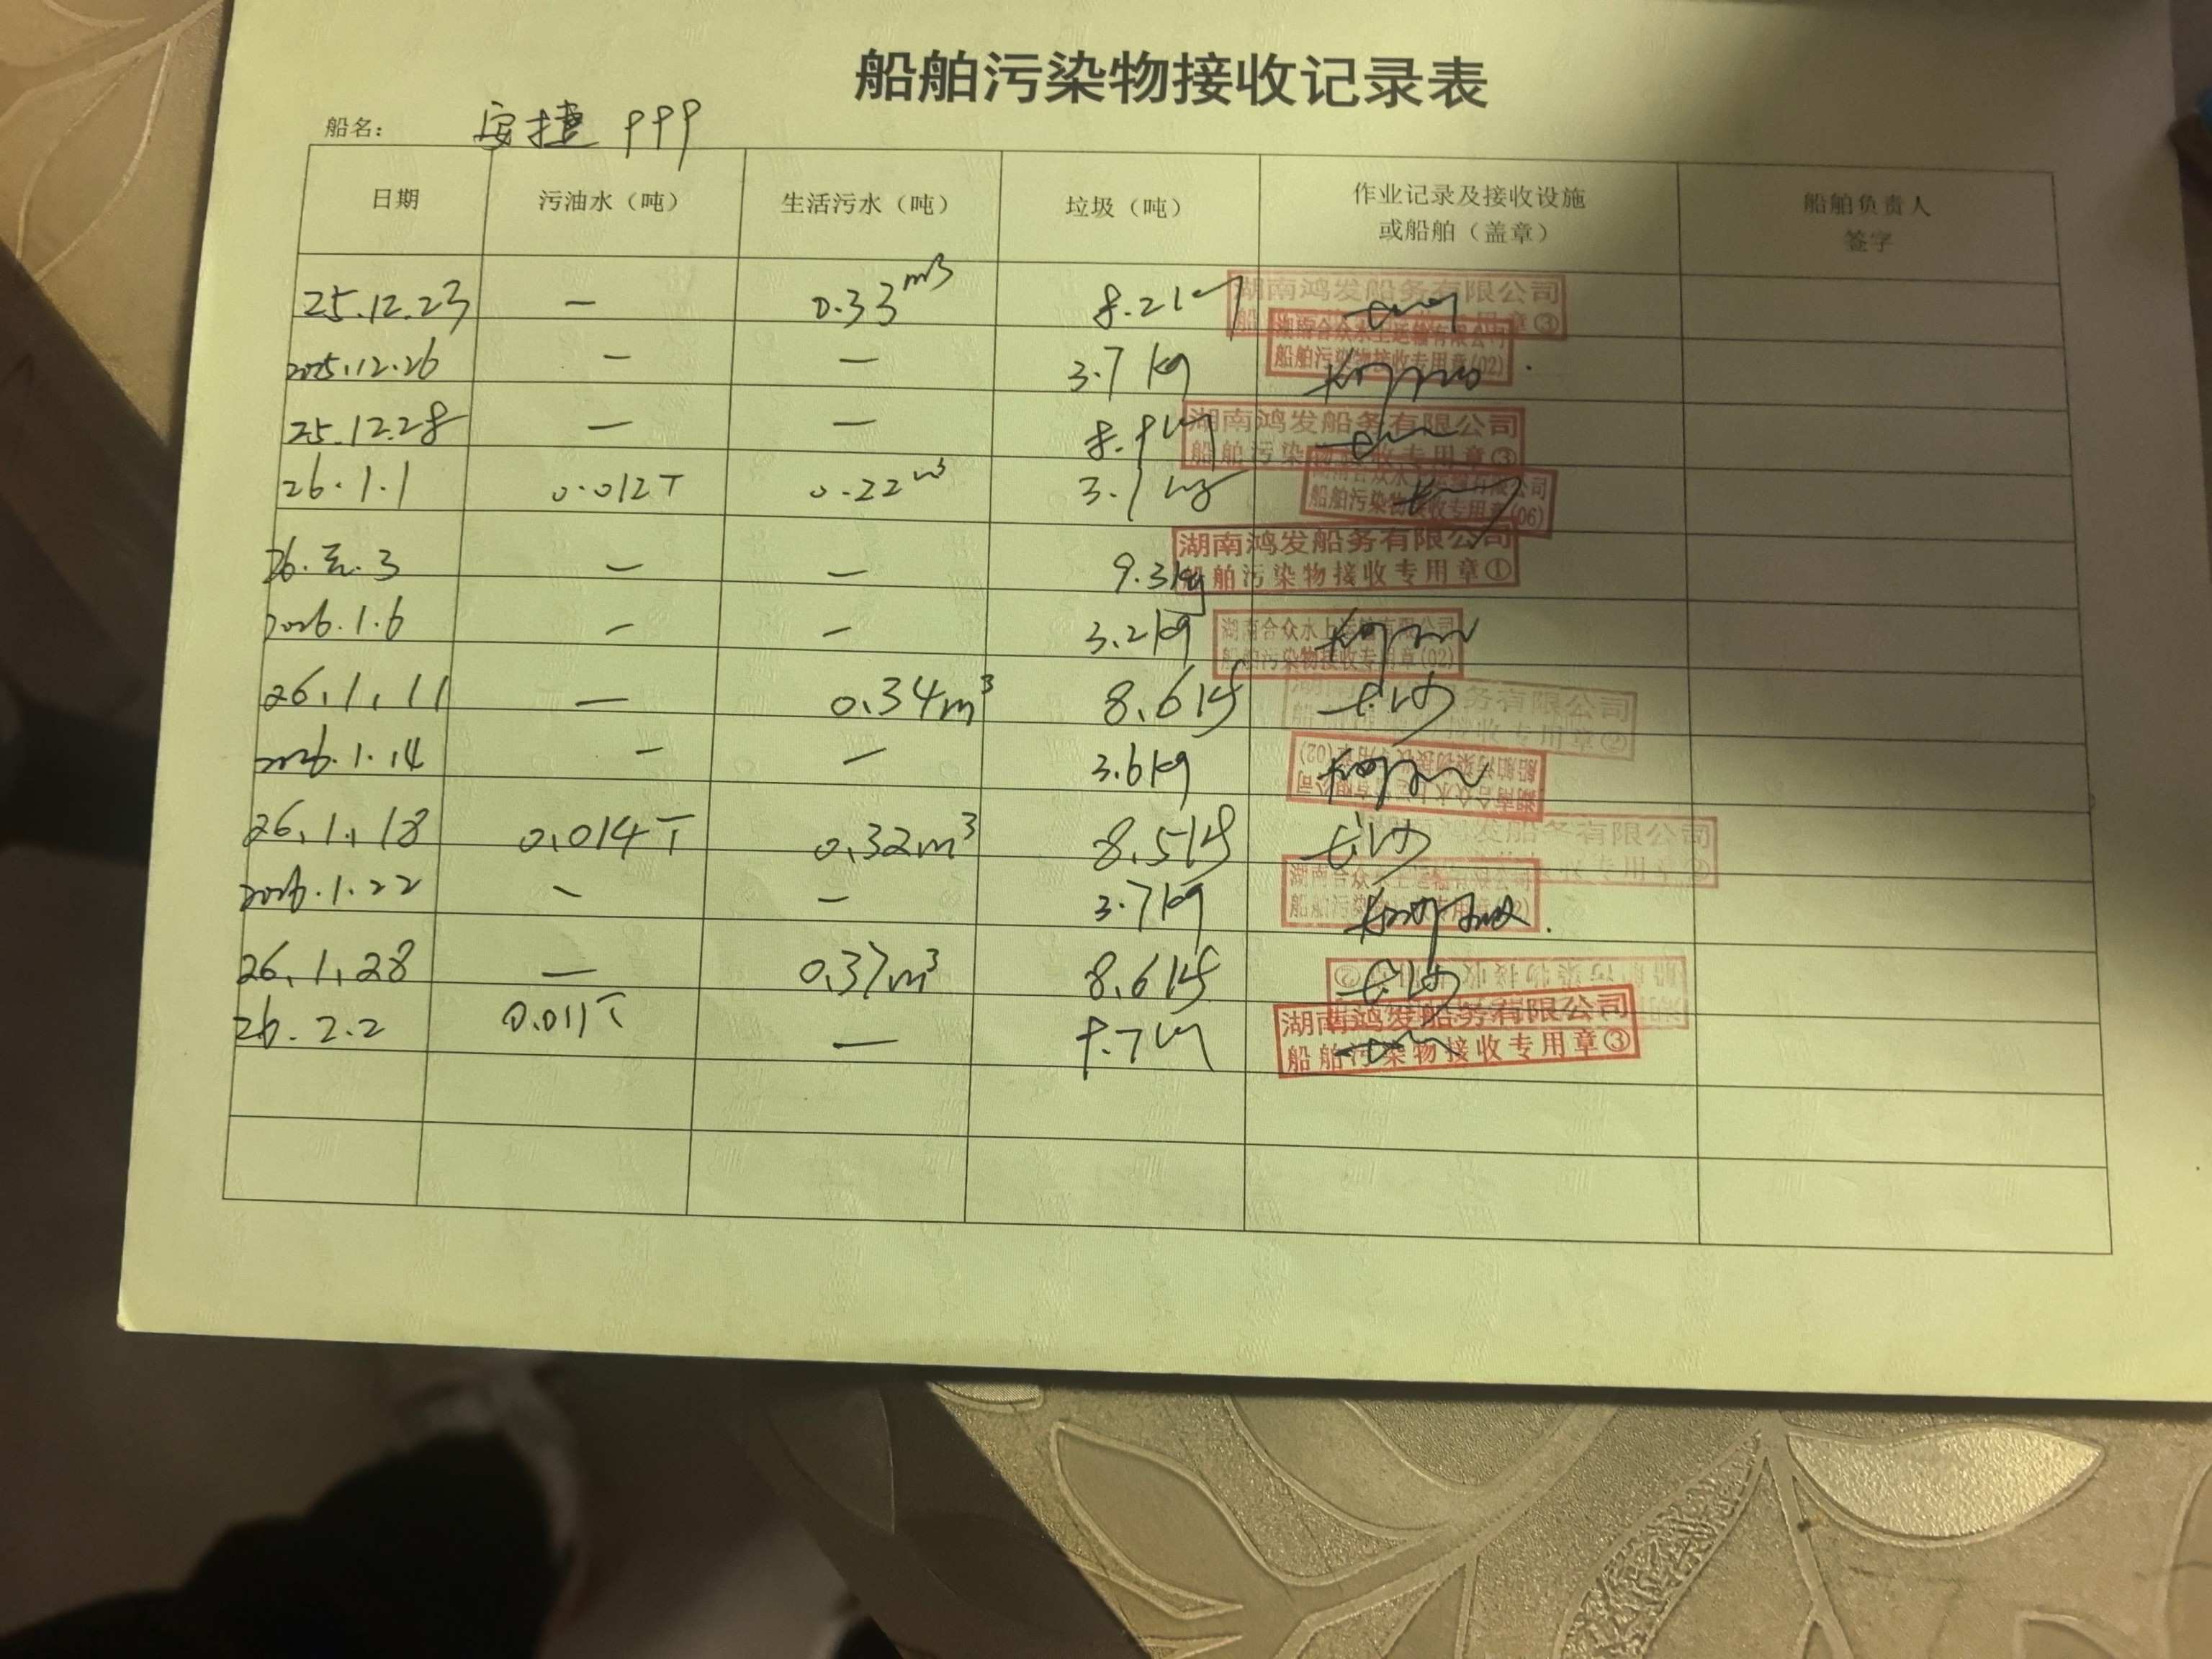 船舶污染物接收记录表
船名： 安捷 999
日期 污油水（吨） 生活污水（吨） 垃圾（吨） 作业记录及接收设施 船舶负责人
或船舶（盖章） 签字
25.12.23 — 0.33m³ 8.2kg 湖南鸿发船务有限公司
2025.12.26 — — 3.7kg 湖南合众水上运输有限公司
船舶污染物接收专用章(02)
25.12.28 — — 8.9kg 湖南鸿发船务有限公司
船舶污染物接收专用章③
26.1.1 0.012T 0.22m³ 3.1kg 湖南合众水上运输有限公司
船舶污染物接收专用章(06)
26.元.3 — — 9.3kg 湖南鸿发船务有限公司
船舶污染物接收专用章①
2026.1.6 — — 3.2kg 湖南合众水上运输有限公司
船舶污染物接收专用章(02)
26.1.11 — 0.34m³ 8.6kg 湖南鸿发船务有限公司
船舶污染物接收专用章②
2026.1.14 — — 3.6kg 湖南合众水上运输有限公司
船舶污染物接收专用章(02)
26.1.18 0.014T 0.32m³ 8.5kg 长沙 湖南鸿发船务有限公司
2026.1.22 — — 3.7kg 湖南合众水上运输有限公司
26.1.28 — 0.37m³ 8.6kg 长沙
26.2.2 0.011T — 9.7kg 湖南鸿发船务有限公司
船舶污染物接收专用章③